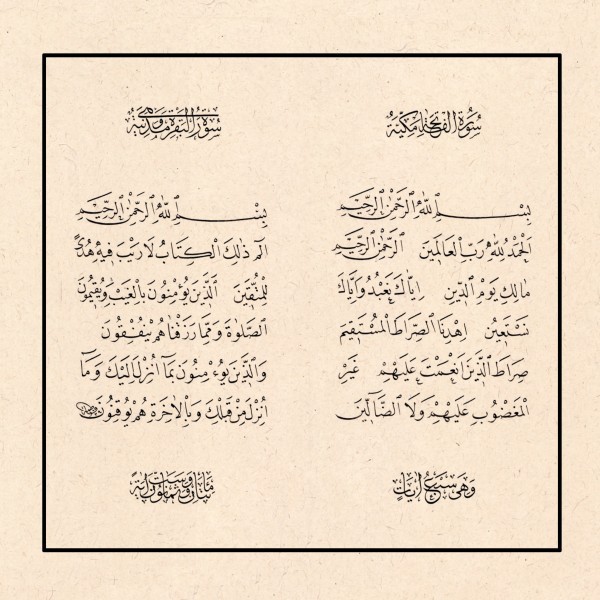 سورة الفاتحة مكية
بسم الله الرحمن الرحيم
الحمد لله رب العالمين الرحمن الرحيم
مالك يوم الدين اياك نعبد واياك
نستعين اهدنا الصراط المستقيم
صراط الذين انعمت عليهم غير
المغضوب عليهم ولا الضالين
وهى سبع ايات
سورة البقرة مدنية
بسم الله الرحمن الرحيم
الم ذلك الكتاب لا ريب فيه هدى
للمتقين الذين يؤمنون بالغيب ويقيمون
الصلوة ومما رزقناهم ينفقون
والذين يؤمنون بما انزل اليك وما
انزل من قبلك وبالاخرة هم يوقنون
مائتان وست وثمانون اية